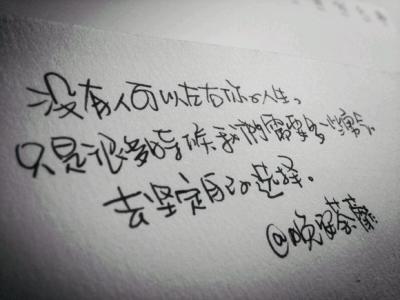 没有人可以左右你的人生。
只是很多时候我们需要多一些勇气，
去坚定自己的选择。
@晚安荼蘼